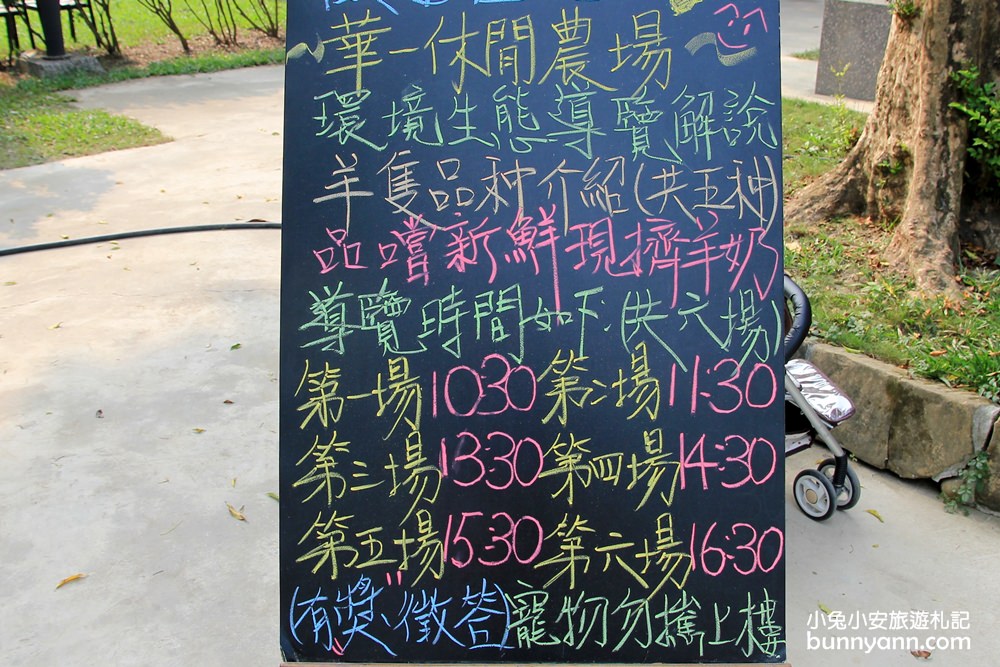 華一休閒農場
環境生態導覽解說
羊隻品种介紹(共五种)
品嚐新鮮現擠羊奶
導覽時間如下:(共六場)
第一場10:30 第二場11:30
第三場13:30 第四場14:30
第五場15:30 第六場16:30
(有獎徵答)寵物勿攜上樓
小兔小安旅遊札記
bunnyann.com